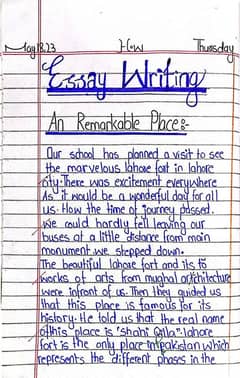 May 18,23 H.W Thursday
Essay Writing
An Remarkable Place:-
Our school has planned a visit to see
the marvelous lahore fort in lahore
city. There was excitement everywhere
As it would be a wonderful day for all
us. How the time of journey passed.
We could hardly tell leaving our
buses at a little distance from main
monument we stepped down.
The beautiful lahore fort and its to
works of arts from mughal architecture
were infront of us. Then they guided us
that this place is famous for its
history. He told us that the real name
of this place is "Shahi Qila" lahore
fort is the only place in pakistan which
represents the different phases in the